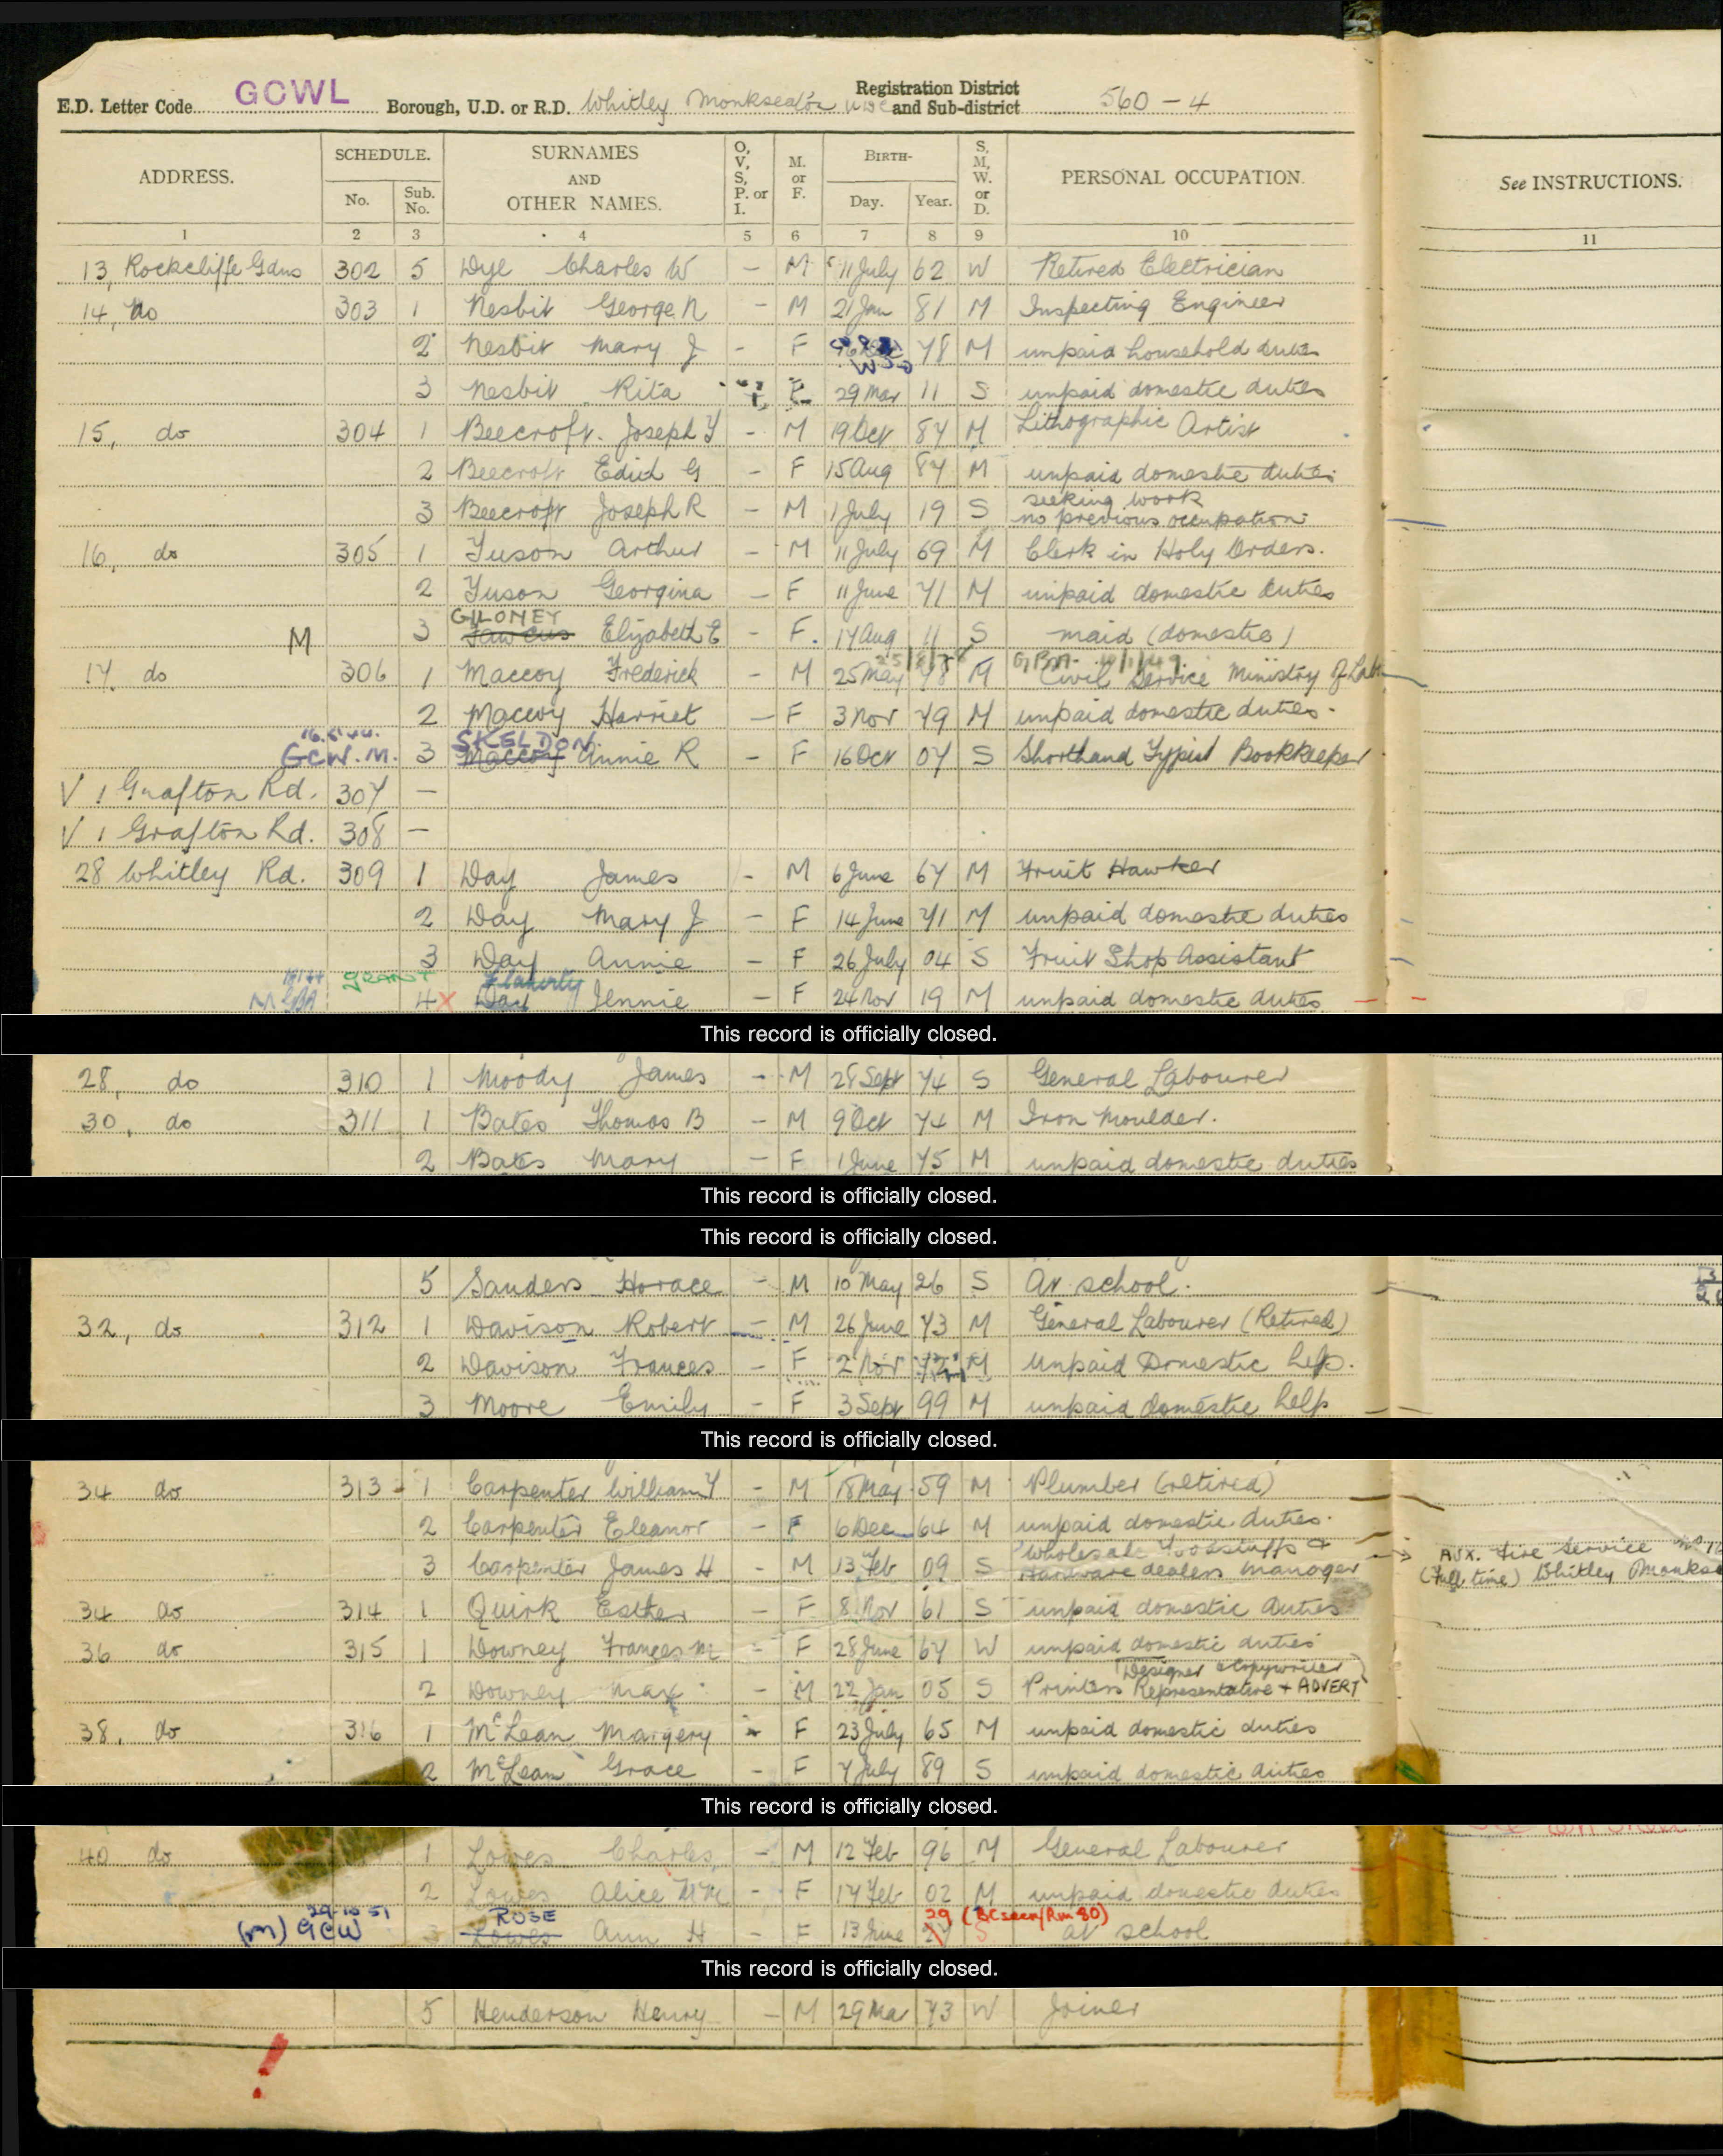 E.D. Letter Code GCWL Borough, U.D. or R.D. Whitley Monkseaton Registration District and Sub-district 560-4
ADDRESS. SCHEDULE. No. Sub. No. SURNAMES AND OTHER NAMES. O, V, S, P. or I. M. or F. BIRTH- Day. Year. S, M, W. or D. PERSONAL OCCUPATION. See INSTRUCTIONS.
1 2 3 4 5 6 7 8 9 10 11
13, Rockcliffe Gdns 302 5 Dye Charles W - M 11 July 62 W Retired Electrician
14, do 303 1 Nesbit George N - M 21 Jan 81 M Inspecting Engineer
2 Nesbit Mary J - F 78 M unpaid household duties
3 Nesbit Rita F 29 Mar 11 S unpaid domestic duties
15, do 304 1 Beecroft Joseph T - M 19 Oct 87 M Lithographic Artist
2 Beecroft Edith G - F 15 Aug 87 M unpaid domestic duties
3 Beecroft Joseph R - M 1 July 19 S seeking work
no previous occupation
16, do 305 1 Tuson Arthur - M 11 July 69 M Clerk in Holy Orders.
2 Tuson Georgina - F 11 June 71 M unpaid domestic duties
GILONEY
M 3 Elizabeth E - F. 17 Aug 11 S maid (domestic)
17 do 306 1 Maccoy Frederick - M 25 May 78 M Civil Service Ministry of Lab
2 Maccoy Harriet - F 3 Nov 79 M unpaid domestic duties
SKELDON
GCW.M. 3 Maccoy Annie R - F 16 Oct 07 S Shorthand Typist Bookkeeper
V 1 Grafton Rd. 307 -
V 1 Grafton Rd. 308 -
28 Whitley Rd. 309 1 Day James - M 6 June 67 M Fruit Hawker
2 Day Mary J - F 14 June 71 M unpaid domestic duties
3 Day Annie - F 26 July 04 S Fruit Shop Assistant
GRANT Flaherty
4 X Day Jennie - F 24 Nov 19 M unpaid domestic duties
This record is officially closed.
28, do 310 1 Moody James - M 28 Sept 74 S General Labourer
30, do 311 1 Bates Thomas B - M 9 Oct 74 M Iron Moulder.
2 Bates Mary - F 1 June 75 M unpaid domestic duties
This record is officially closed.
This record is officially closed.
5 Sanders Horace - M 10 May 26 S At school.
32, do 312 1 Davison Robert - M 26 June 73 M General Labourer (Retired)
2 Davison Frances - F 2 Nov M Unpaid Domestic help.
3 Moore Emily - F 3 Sept 99 M unpaid domestic help
This record is officially closed.
34 do 313 1 Carpenter William T - M 18 May 59 M Plumber (retired)
2 Carpenter Eleanor - F 6 Dec 64 M unpaid domestic duties.
3 Carpenter James H - M 13 Feb 09 S Wholesale Foodstuffs &
Hardware dealers manager AUX. Fire Service
(full time) Whitley Monkse
34 do 314 1 Quirk Esther - F 8 Nov 61 S unpaid domestic duties
36 do 315 1 Downey Frances M - F 28 June 67 W unpaid domestic duties
Designer & Copywriter
2 Downey Max - M 22 Jan 05 S Printers Representative + ADVERT
38, do 316 1 McLean Margery F 23 July 65 M unpaid domestic duties
2 McLean Grace - F 7 July 89 S unpaid domestic duties
This record is officially closed.
40 do 1 Lowes Charles - M 12 Feb 96 M General Labourer
2 Lowes Alice - F 17 Feb 02 M unpaid domestic duties
29-10-51 ROSE 29 (BC seen/Rm 80)
(M) GCW 3 Lowes Ann H - F 13 June S at school
This record is officially closed.
5 Henderson Henry - M 29 Mar 73 W Joiner